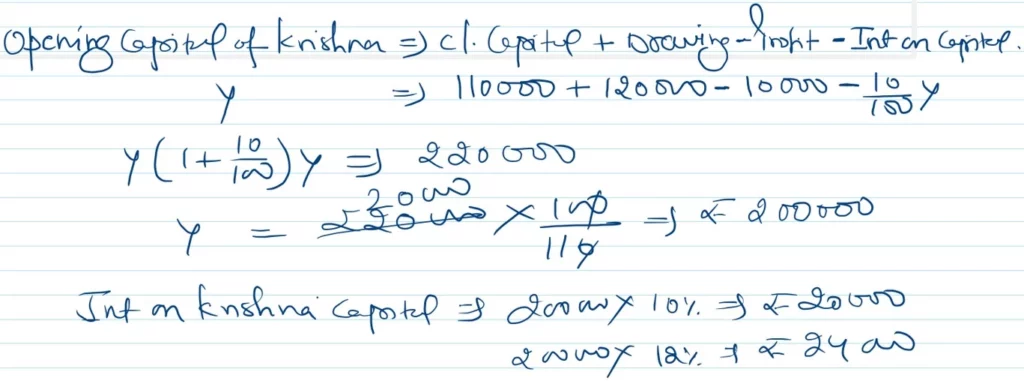 Opening Capital of Krishna => Cl. Capital + Drawing - Profit - Int on Capital.
Y => 110000 + 120000 - 10000 - 10/100 Y
Y (1 + 10/100) Y => 220000
2000
Y = 220000 × 100/110 => ₹ 200000
Int on Krishna Capital => 200000 × 10% => ₹ 20000
200000 × 12% => ₹ 24000